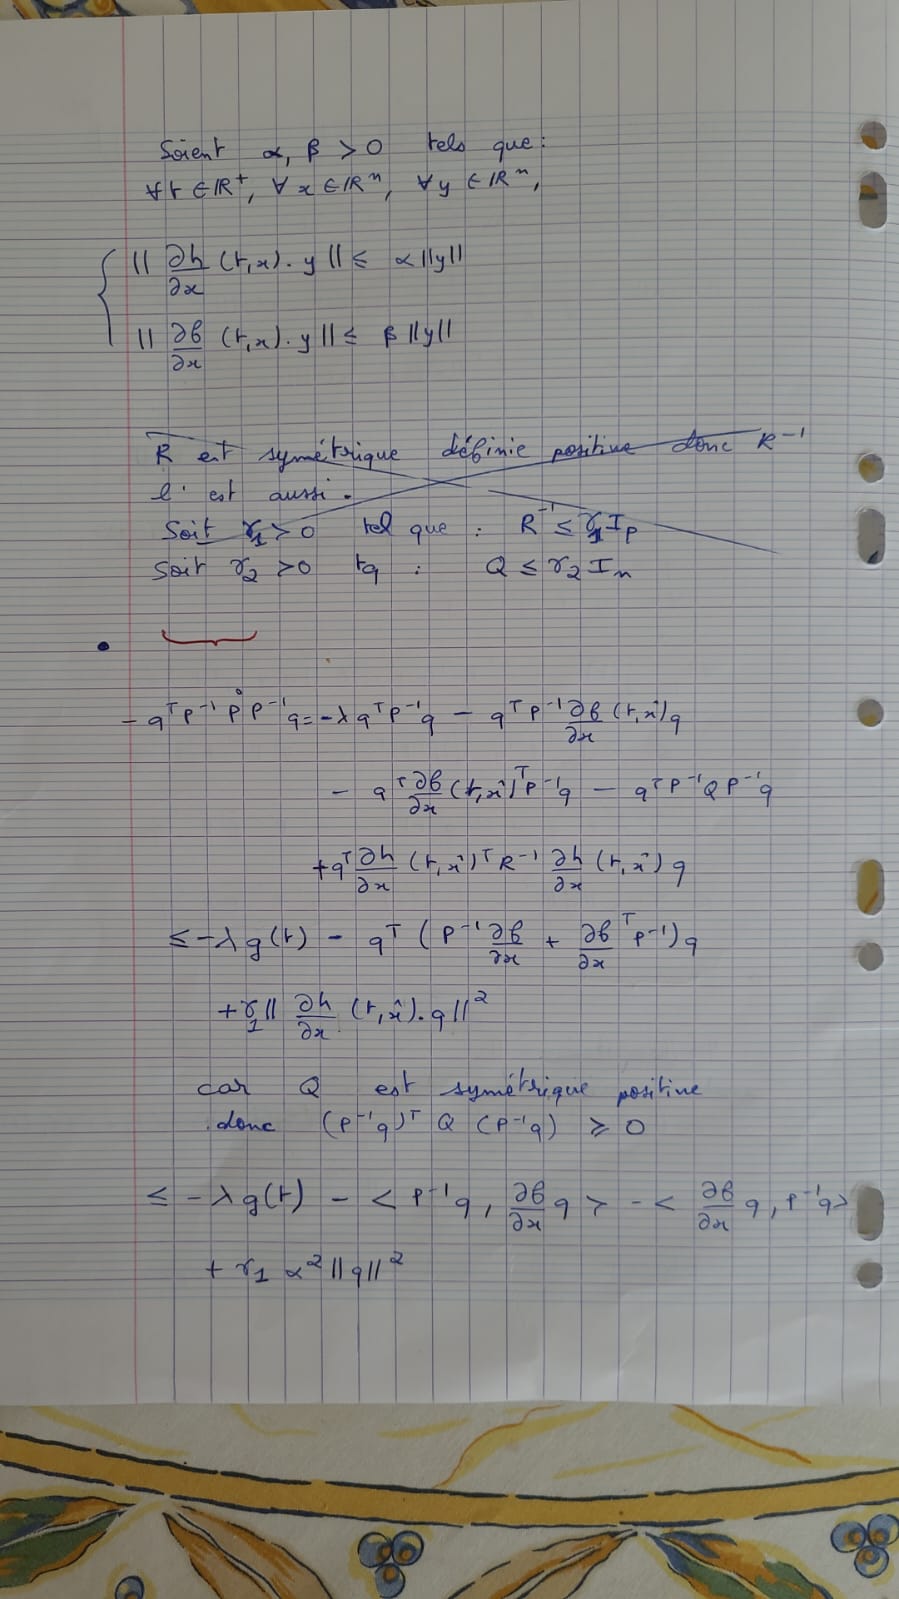 Soient α, β > 0 tels que :
∀t ∈ ℝ⁺, ∀x ∈ ℝⁿ, ∀y ∈ ℝⁿ,
{ || ∂h/∂x (t,x). y || ≤ α||y||
|| ∂f/∂x (t,x). y || ≤ β ||y||
R est symétrique définie positive donc R⁻¹
l'est aussi.
Soit r₁ > 0 tel que : R⁻¹ ≤ r₁ I_p
Soit r₂ > 0 tq : Q ≤ r₂ I_n
• - qᵀP⁻¹ṖP⁻¹q = -λ qᵀP⁻¹q - qᵀP⁻¹ ∂f/∂x (t,x̂) q
- qᵀ ∂f/∂x (t,x̂)ᵀ P⁻¹q - qᵀP⁻¹QP⁻¹q
+ qᵀ ∂h/∂x (t,x̂)ᵀ R⁻¹ ∂h/∂x (t,x̂) q
≤ -λ g(t) - qᵀ (P⁻¹ ∂f/∂x + ∂f/∂xᵀ P⁻¹) q
+ r₁ || ∂h/∂x (t,x̂). q ||²
car Q est symétrique positive
donc (P⁻¹q)ᵀ Q (P⁻¹q) ≥ 0
≤ -λ g(t) - < P⁻¹q, ∂f/∂x q > - < ∂f/∂x q, P⁻¹q >
+ r₁ α² ||q||²